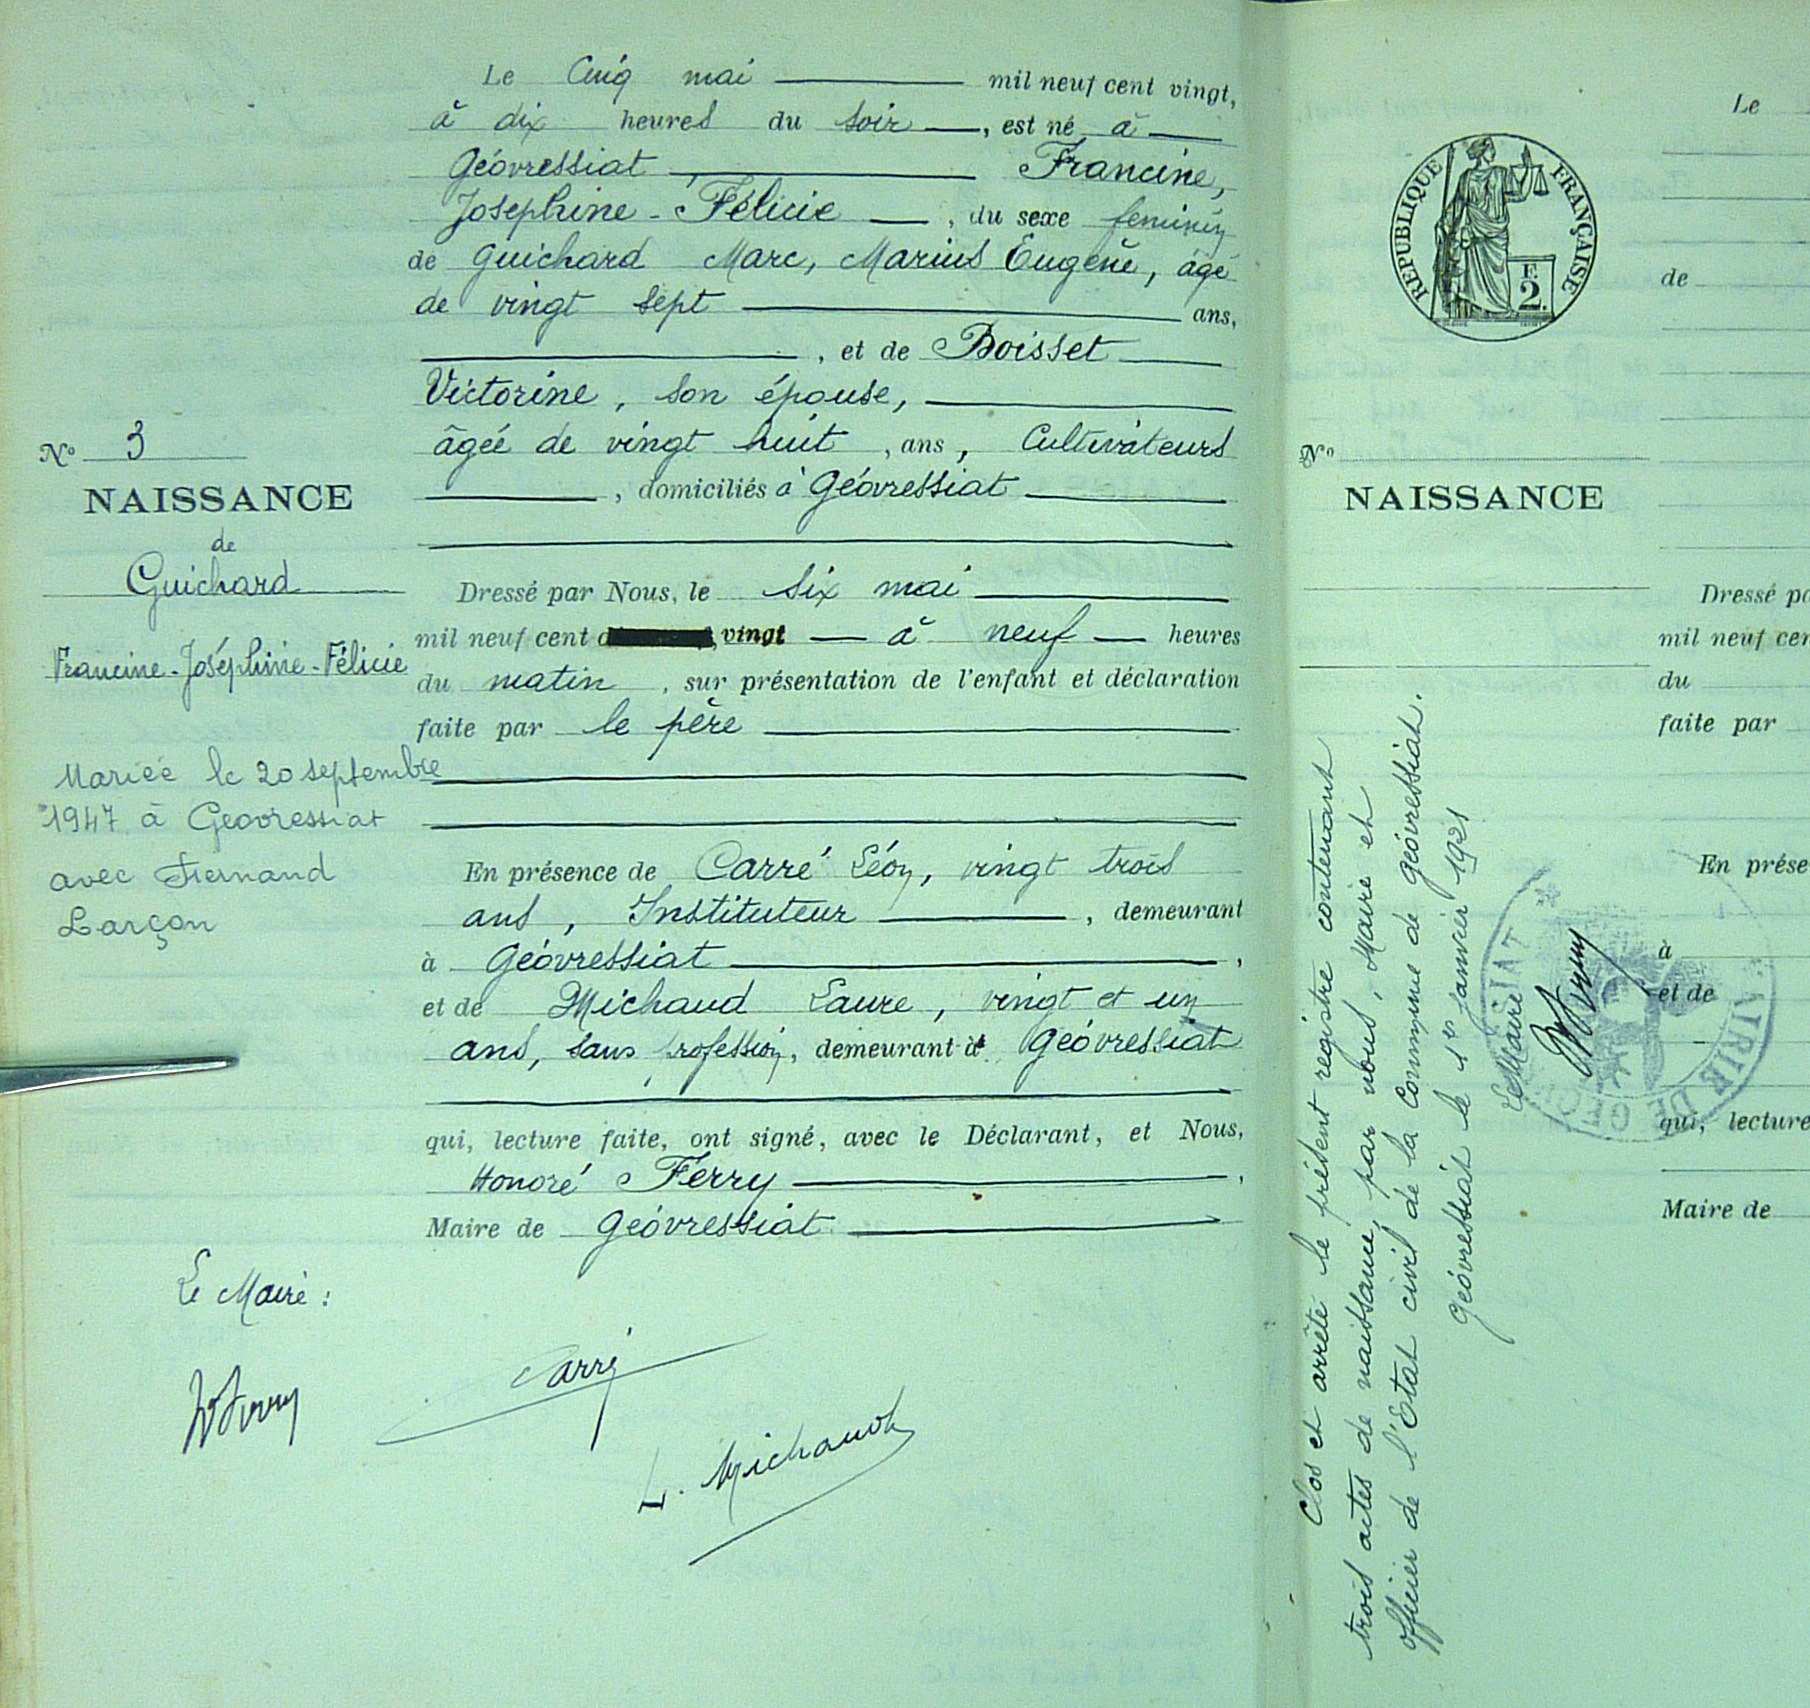 Le Cinq mai mil neuf cent vingt,
à dix heures du soir, est né à
Géovressiat Francine,
Joséphine-Félicie, du sexe feminin
de Guichard Marc, Marius Eugène, âgé
de vingt sept ans,
, et de Boisset
Victorine, son épouse,
âgée de vingt huit, ans, Cultivateurs
, domiciliés à Géovressiat
Nº 3
NAISSANCE
de
Guichard
Francine-Joséphine-Félicie
Mariée le 20 septembre
1947 à Geovressiat
avec Fernand
Larçon
Dressé par Nous, le six mai
mil neuf cent vingt à neuf heures
du matin, sur présentation de l'enfant et déclaration
faite par le père
En présence de Carré Léon, vingt trois
ans, Instituteur, demeurant
à Géovressiat,
et de Michaud Laure, vingt et un
ans, sans profession, demeurant à Géovressiat
qui, lecture faite, ont signé, avec le Déclarant, et Nous,
Honoré Ferry,
Maire de Géovressiat
Le Maire:
HFerry
Carré
L. Michaud
REPUBLIQUE FRANÇAISE
F.
2.
Nº
NAISSANCE
Clos et arrêté le présent registre contenant
trois actes de naissance, par nous, Maire et
officier de l'Etat civil de la Commune de Géovressiat.
Géovressiat le 1er janvier 1921
Le Maire
HFerry
MAIRIE DE GEOVRESSIAT
Le
de
Dressé pa
mil neuf cen
du
faite par
En prése
à
et de
qui, lecture
Maire de